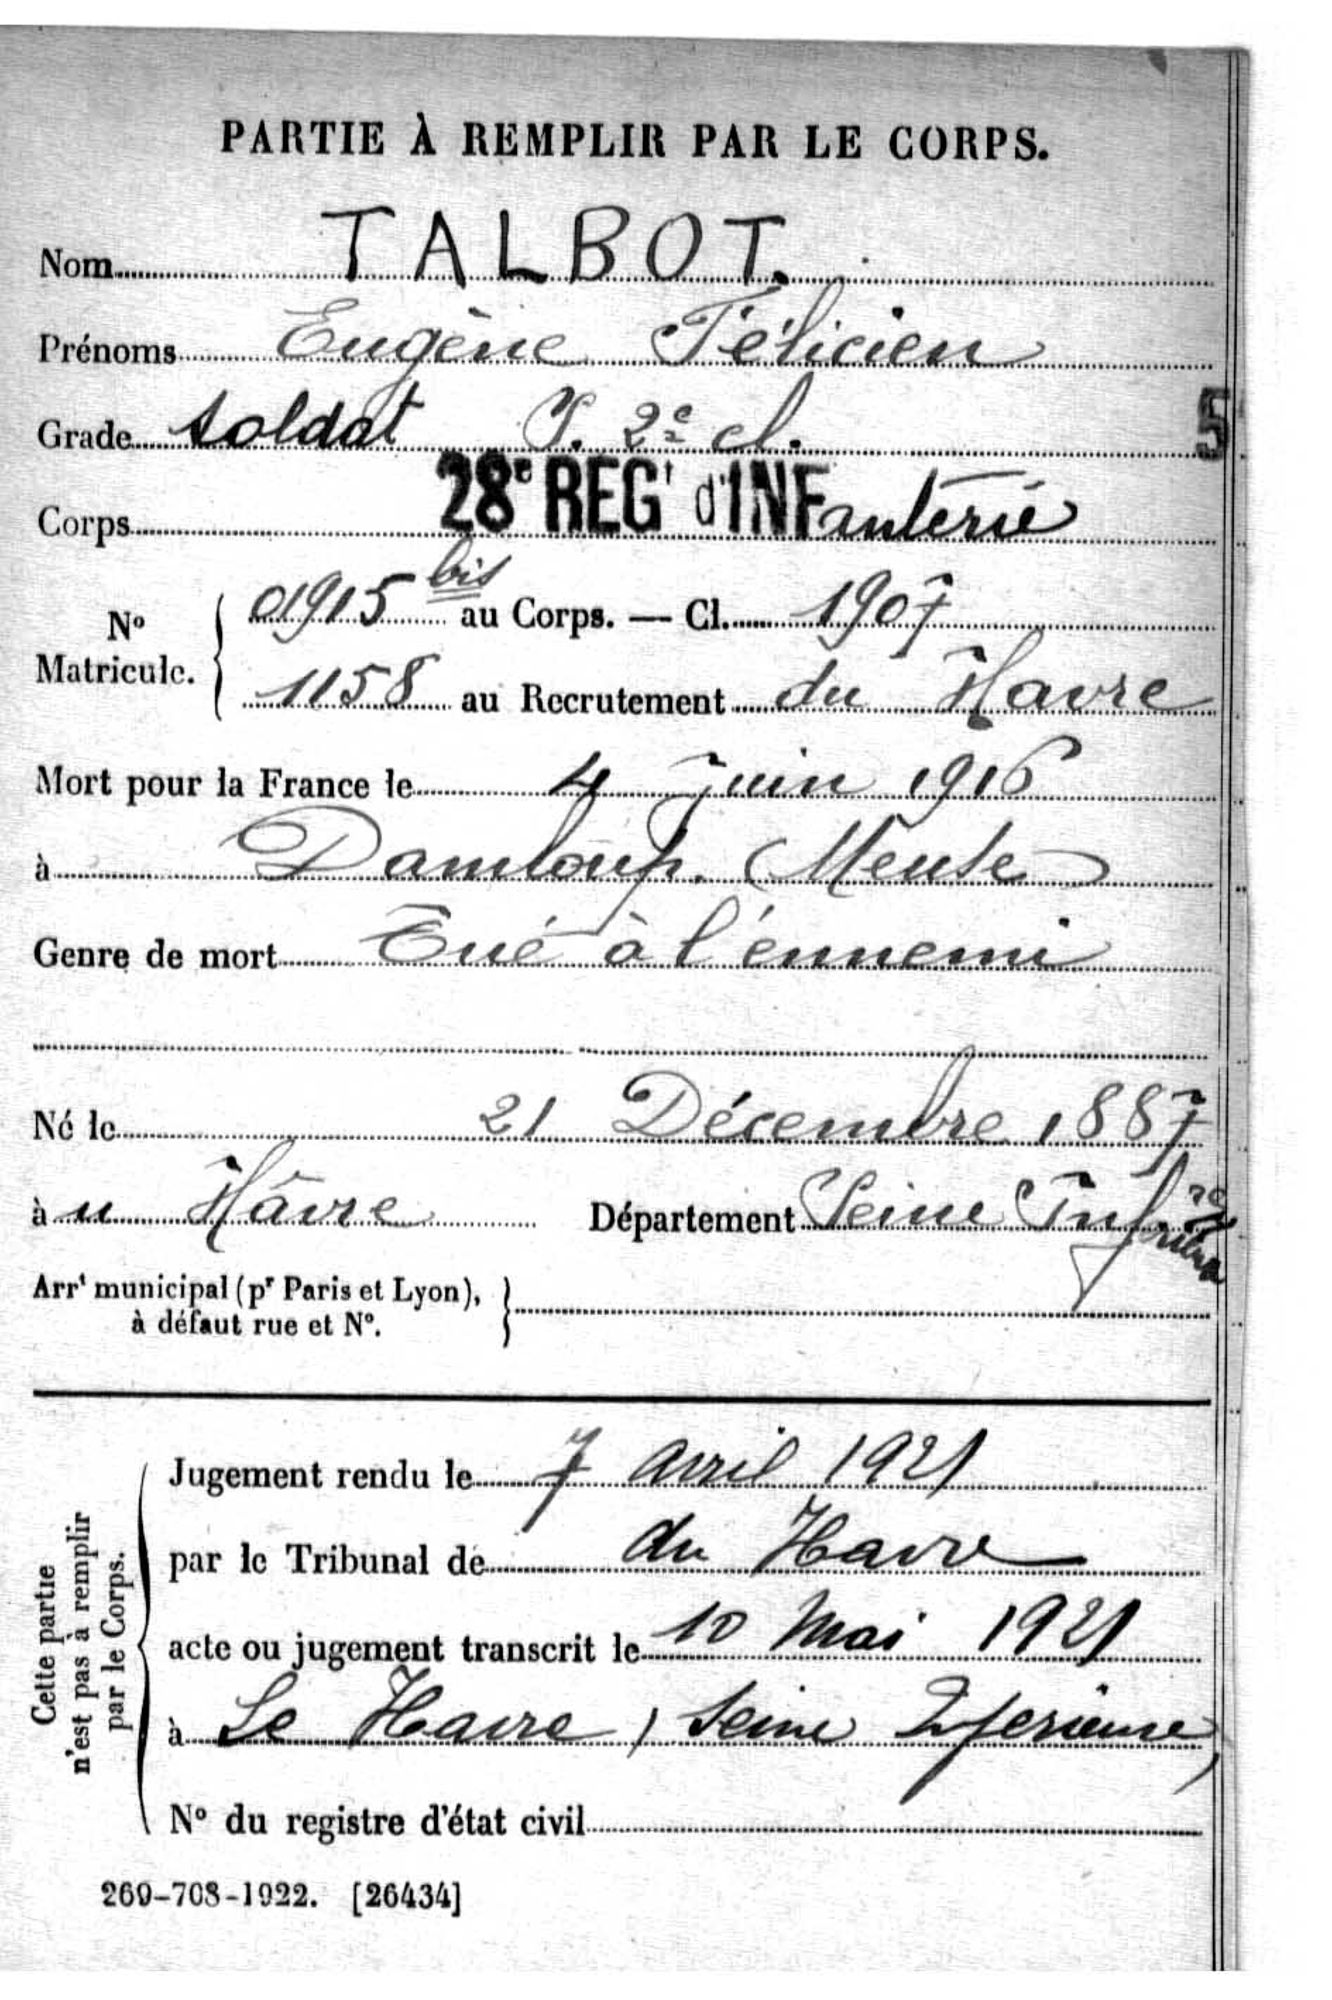 PARTIE À REMPLIR PAR LE CORPS.
Nom TALBOT.
Prénoms Eugène Félicien
Grade soldat S. 2e cl.
5
Corps 28e REGt d'INFanterie
No Matricule. 01915 bis au Corps. — Cl. 1907
1158 au Recrutement du Havre
Mort pour la France le 4 Juin 1916
à Damloup. (Meuse)
Genre de mort Tué à l'ennemi
Né le 21 Décembre 1887
à u Hâvre Département Seine Inf
Arrt municipal (pr Paris et Lyon),
à défaut rue et No.
Cette partie n'est pas à remplir par le Corps.
Jugement rendu le 7 avril 1921
par le Tribunal de du Havre
acte ou jugement transcrit le 10 Mai 1921
à Le Havre (Seine Inferieure)
No du registre d'état civil
269-708-1922. [26434]